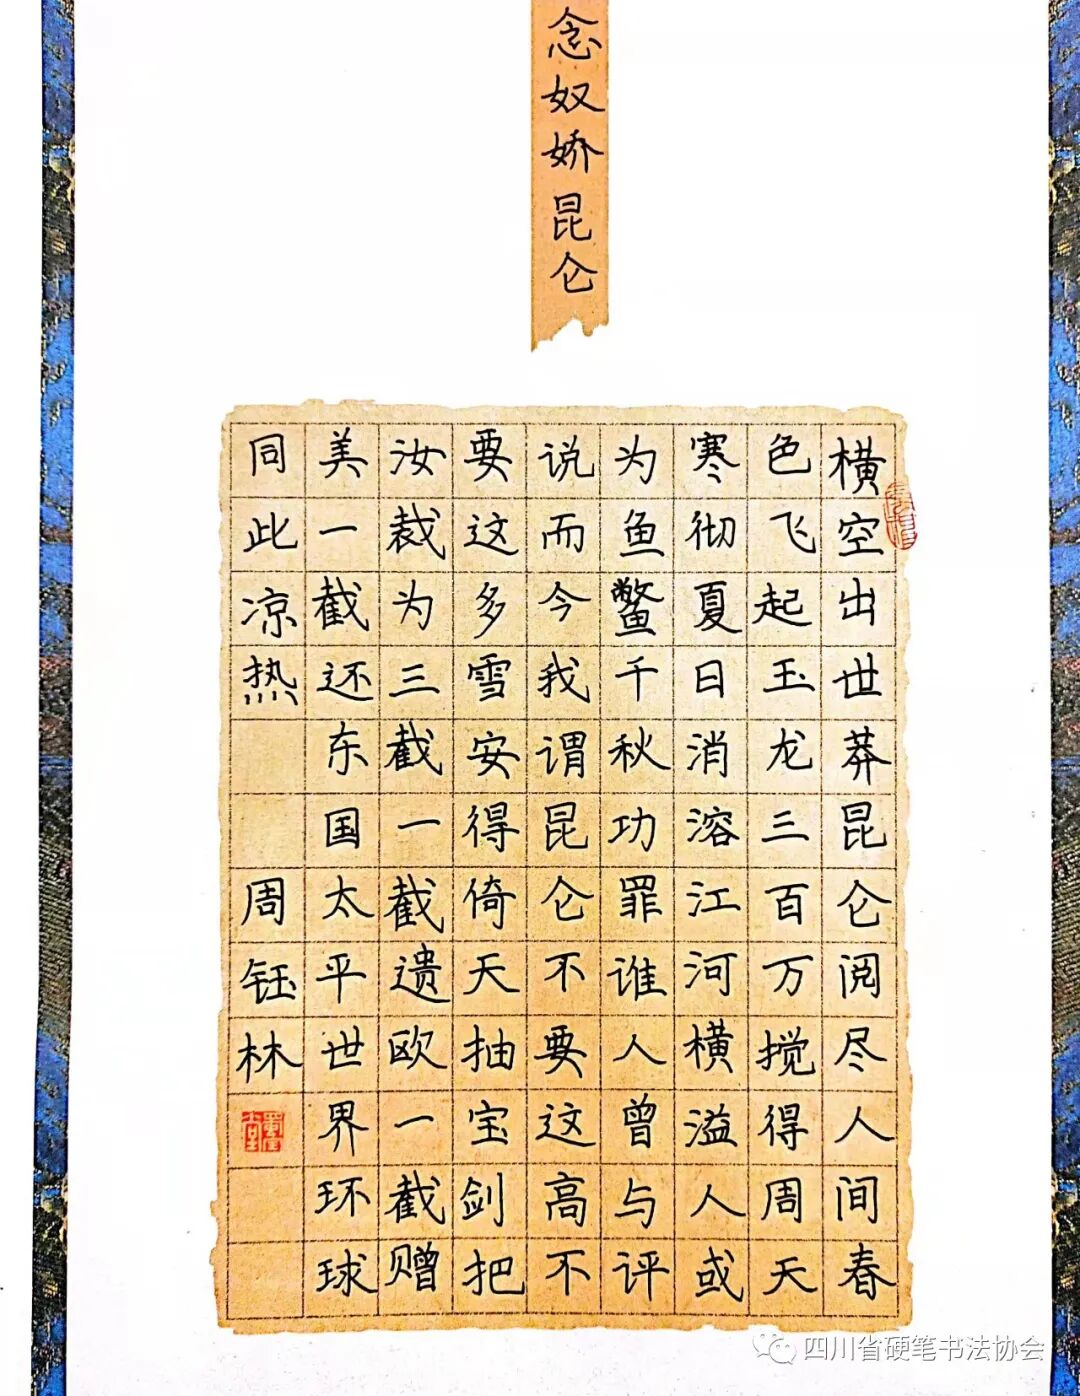 念奴娇昆仑
横空出世莽昆仑阅尽人间春
色飞起玉龙三百万搅得周天
寒彻夏日消溶江河横溢人或
为鱼鳖千秋功罪谁人曾与评
说而今我谓昆仑不要这高不
要这多雪安得倚天抽宝剑把
汝裁为三截一截遗欧一截赠
美一截还东国太平世界环球
同此凉热
周钰林
四川省硬笔书法协会